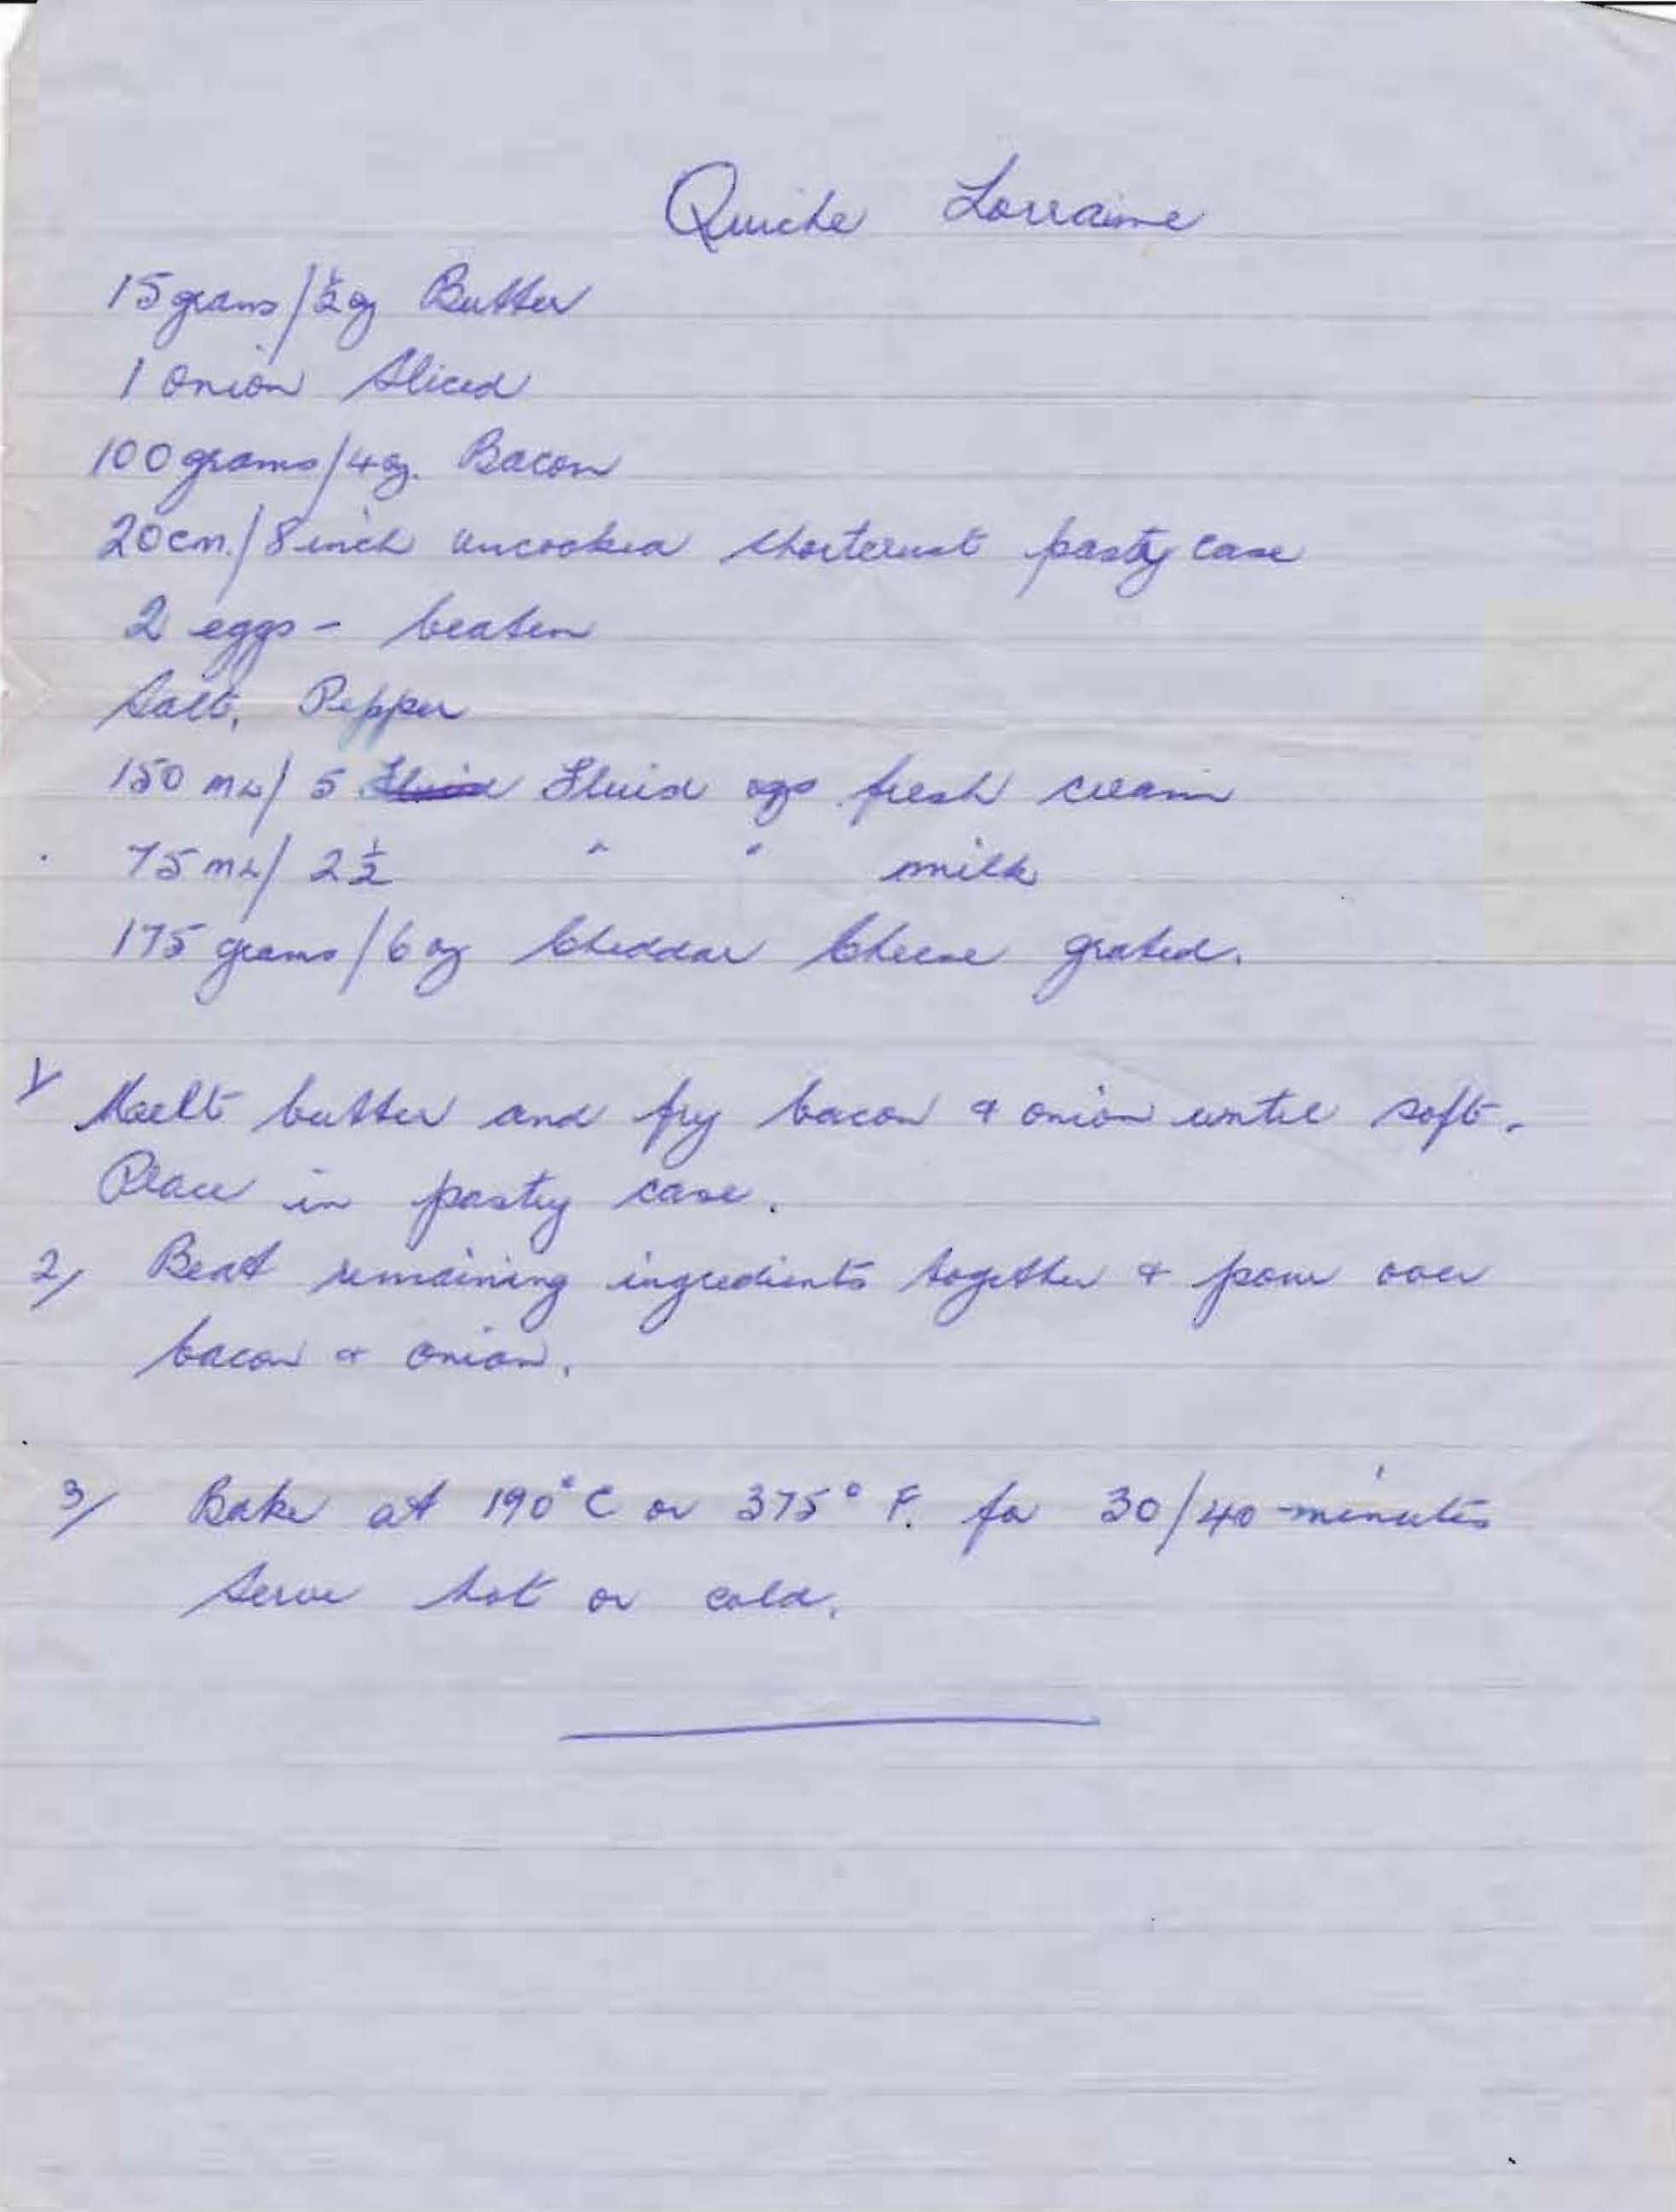 Quiche Lorraine
15 grams/½ oz Butter
1 Onion Sliced
100 grams/4 oz. Bacon
20cm./8 inch uncooked shortcrust pastry case
2 eggs - beaten
Salt, Pepper
150 mL/ 5 Fluid Fluid ozs fresh cream
75 mL/ 2½ " " milk
175 grams/6 oz Cheddar Cheese grated.
1/ Melt butter and fry bacon & onion until soft.
Place in pastry case.
2/ Beat remaining ingredients together & pour over
bacon & onion.
3/ Bake at 190°C or 375° F. for 30/40 minutes
Serve hot or cold.